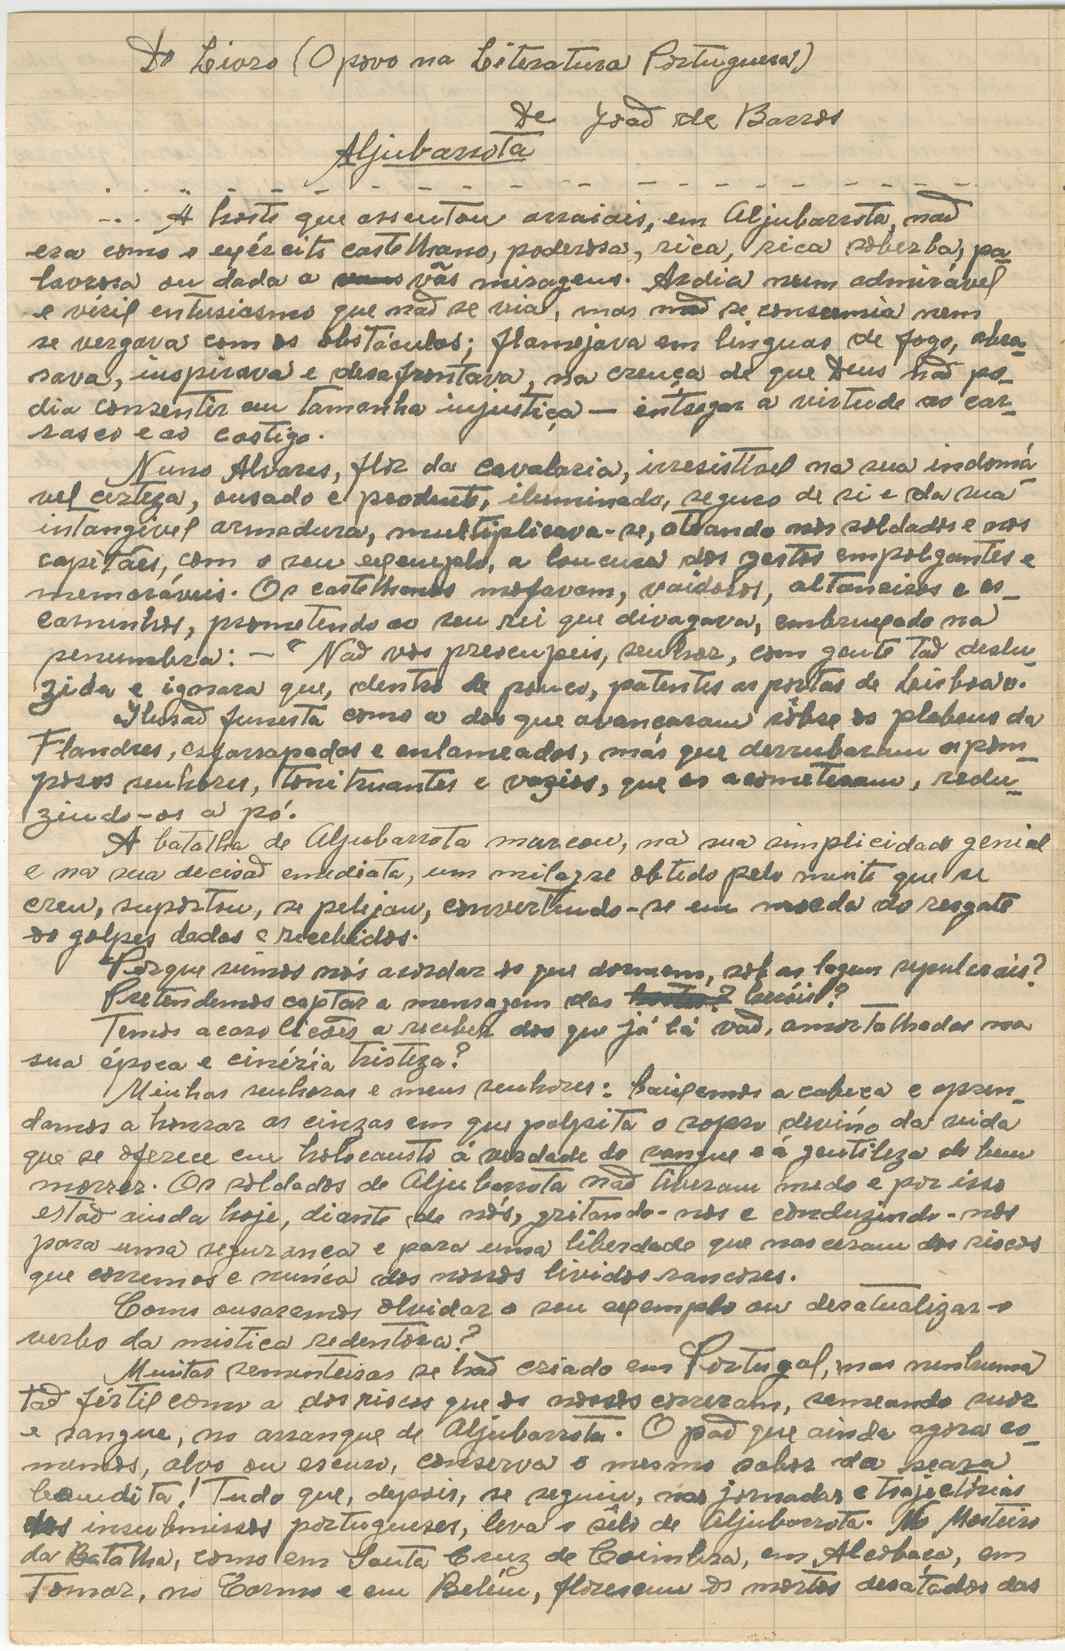 Do Livro (O povo na Literatura Portuguesa)
De João de Barros
Aljubarrota
... A hoste que assentou arraiais, em Aljubarrota, não
era como o exército castelhano, poderosa, rica, rica soberba, pa-
vorosa ou dada a vãs miragens. Ardia num admirável
e viril entusiasmo que não se via, mas não se consumia nem
se vergava com os obstáculos; flamejava em linguas de fogo, abra-
sava, inspirava e desafrontava, na crença de que Deus não po-
dia consentir em tamanha injustiça — entregar a virtude ao car-
rasco e ao castigo.
Nuno Alvares, flor da cavalaria, irresistivel na sua indomá
vel certeza, ousado e prudente, iluminado, seguro de si e da sua
intangível armadura, multiplicava-se, ateando nos soldados e nos
capitães, com o seu exemplo, a loucura dos gestos empolgantes e
memoráveis. Os castelhanos mofavam, vaidosos, altaneiros e es-
carninhos, prometendo ao seu rei que divagava, embruxado na
penumbra: — "Não vos preocupeis, senhor, com gente tão deslu-
zida e ignara que, dentro de pouco, patentes as portas de Lisboa".
Ilusão funesta como a dos que avançaram sôbre os plebeus da
Flandres, esfarrapados e enlameados, más que derrubaram os pom-
posos senhores, tonitruantes e vazios, que os acometeram, redu-
zindo-os a pó.
A batalha de Aljubarrota marcou, na sua simplicidade genial
e na sua decisão emediata, um milagre obtido pelo muito que se
creu, suportou, se pelejou, convertendo-se em moeda do resgate
os golpes dados e recebidos.
Porque viémos nós acordar os que dormem, sob as lagens sepulcrais?
Pretendemos captar a mensagem dos heróis?
Temos acaso licões a receber dos que já lá vão, amortalhados na
sua época e cinéria tristeza?
Minhas senhoras e meus senhores: baixemos a cabeça e apren-
damos a honrar as cinzas em que palpita o sopro devino da vida
que se oferece em holocausto á verdade do sangue e á gentileza do bem
morrer. Os soldados de Aljubarrota não tiveram medo e por isso
estão ainda hoje, diante de nós, gritando-nos e conduzindo-nos
para uma segurança e para uma liberdade que nasceram dos riscos
que corremos e nunca dos nossos lividos rancores.
Como ousaremos olvidar o seu exemplo ou desatualizar o
verbo da mistica redentora?
Muitas sementeiras se hão criado em Portugal, mas nenhuma
tão fértil como a dos riscos que os nossos correram, semeando suor
e sangue, no arranque de Aljubarrota. O pão que ainda agora co-
memos, alvo ou escuro, conserva o mesmo sabor da seara
bemdita! Tudo que, depois, se seguiu, nas jornadas e trajectórias
dos insubmissos portugueses, leva o sêlo de Aljubarrota. No Mosteiro
da Batalha, como em Santa Cruz de Coimbra, em Alcobaça, em
Tomar, no Carmo e em Belém, florescem os mortos desatados das